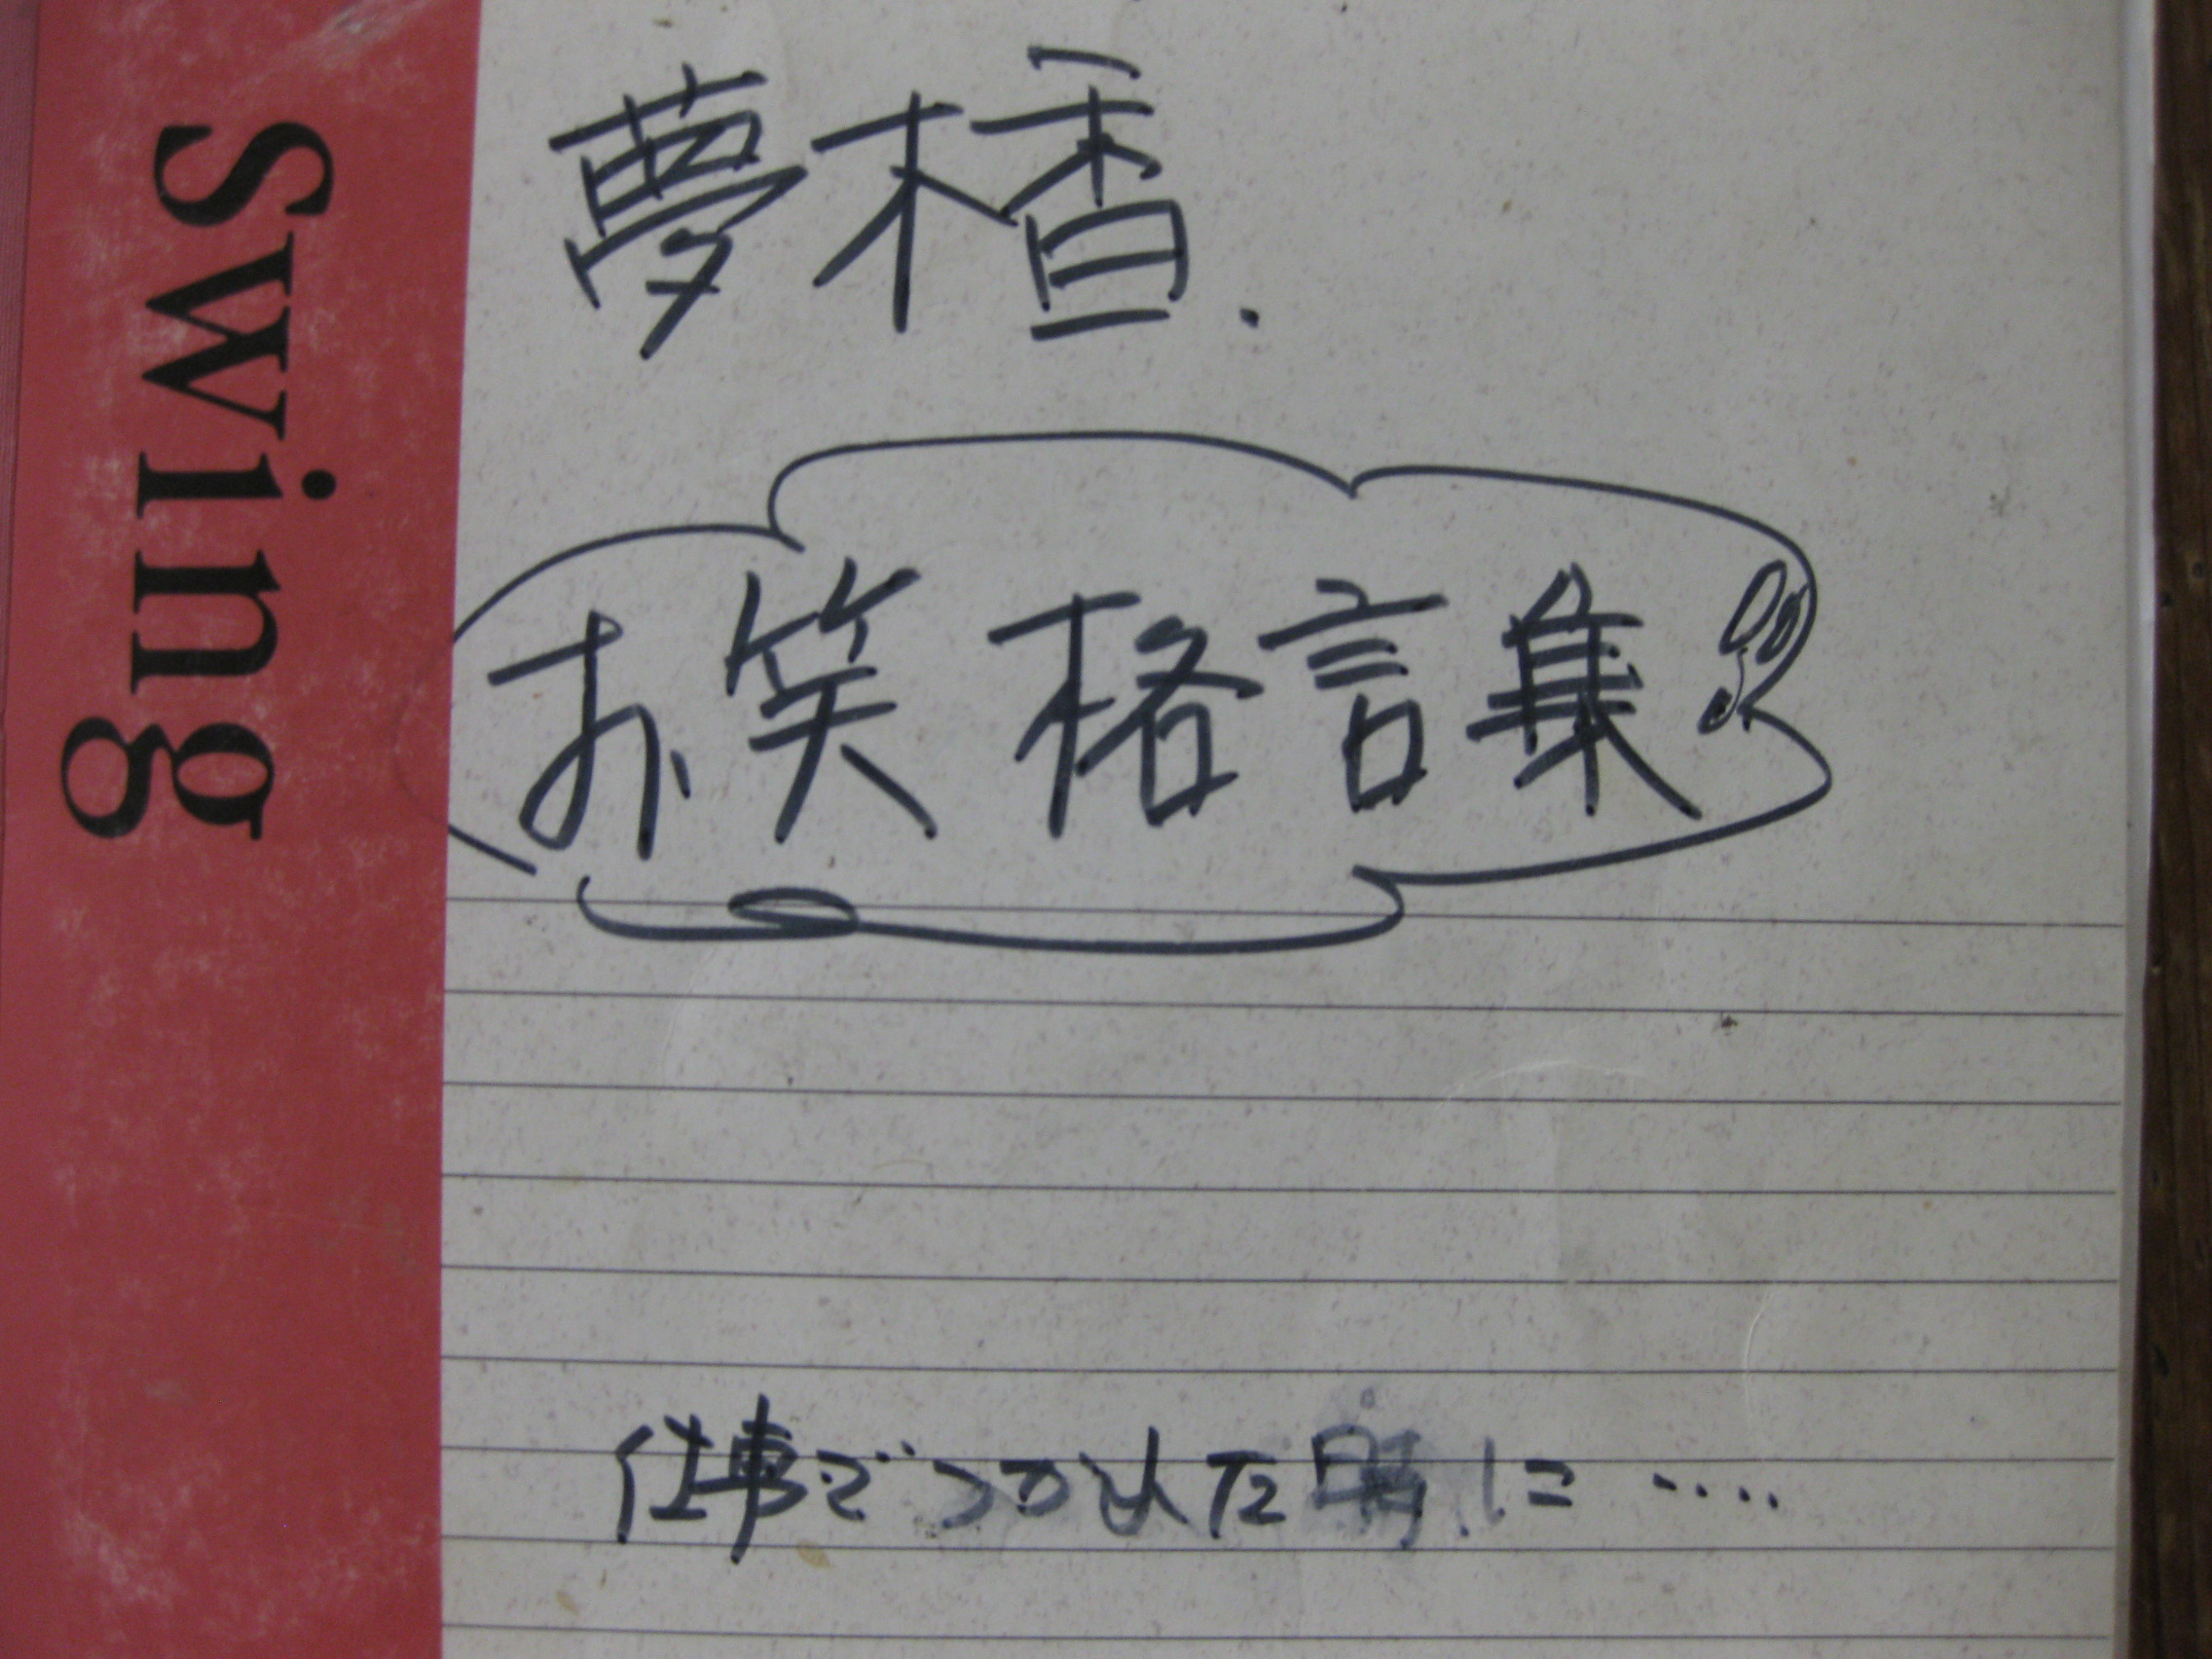 Swing
夢楂.
お笑格言集
仕事でつかれた時に・・・・